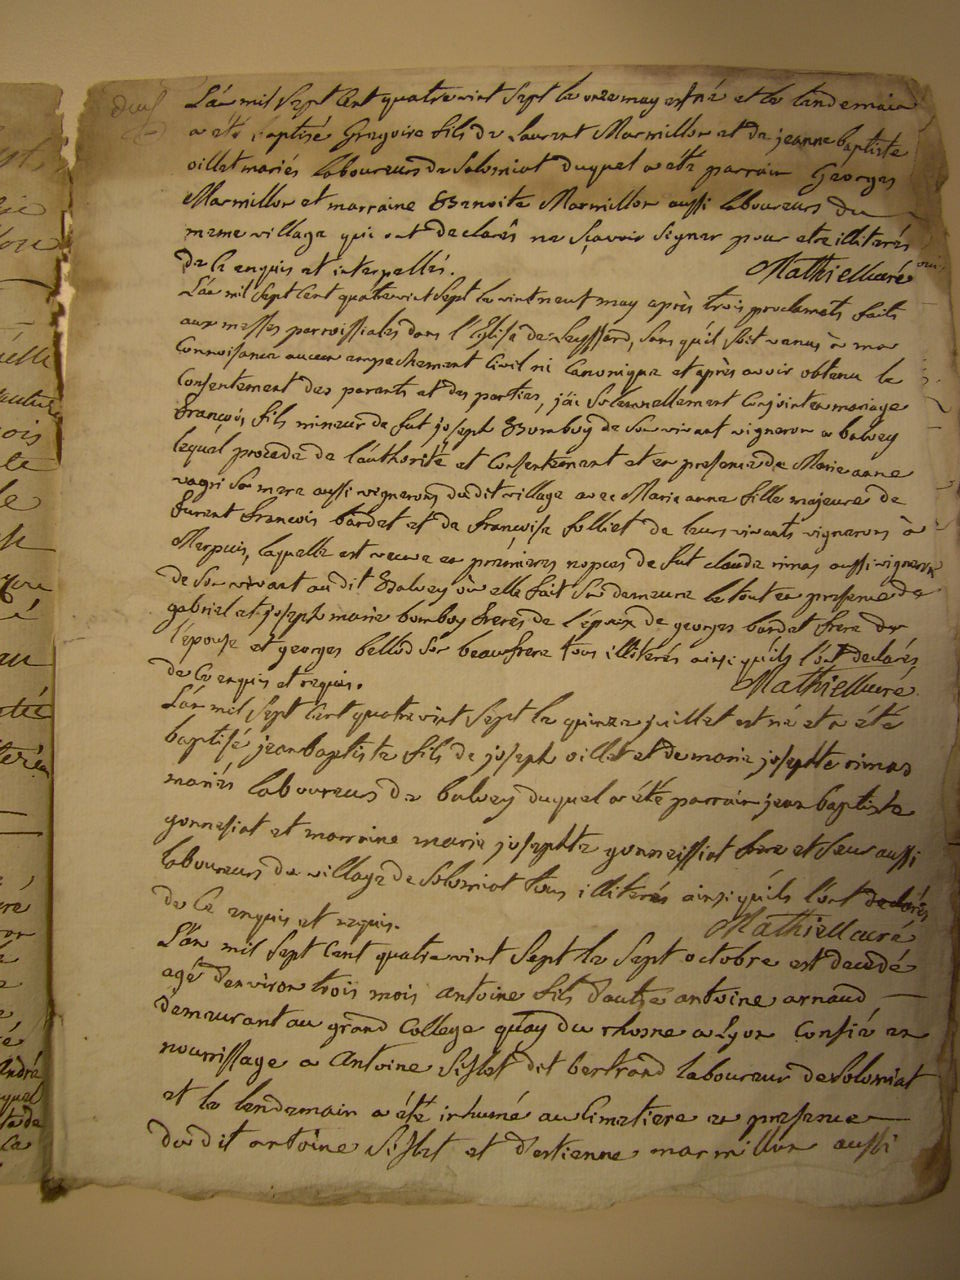 L'an mil sept cent quatre vint sept le onze may est né et le lendemain
a été baptisé Gregoire fils de Laurent Marmillon et de jeanne baptiste
oillet mariés laboureurs de Solomiat duquel a été parrain Georges
Marmillon et marraine Benoite Marmillon aussi laboureurs du
meme village qui ont declarés ne sçavoir signer pour etre illiterés
de ce enquis et interpellés. Mathieu curé
L'an mil sept cent quatre vint sept le vint neuf may après trois proclamats faits
aux messes parroissiales dans l'Eglise de Leyssard, sans qu'il soit venus à ma
connoisance aucun empechement civil ni canonique et après avoir obtenu le
consentement des parents et des parties, j'ai solemnellement conjoint en mariage
François, fils mineur de fut joseph Bomboy de son vivant vigneron a balvey
lequel procede de l'authorité et consentement et en presence de Marie anne
sa mere aussi vignerons du dit village avec Marie anne fille majeure de
furent francois bardet et de françoise folliet de leurs vivants vignerons à
Merpuis, laquelle est veuve en prémieres nopces de fut claude rimos aussi vigneron
de son vivant au dit Balvey où elle fait sa demeure le tout en presence de
gabriel et joseph marie bomboy freres de l'époux de georges bardet frere de
l'épouse et georges bellod son beaufrere tous illiterés ainsi qu'ils l'ont declarés
de ce enquis et requis. Mathieu curé
L'an mil sept cent quatre vint sept le quinze juillet est né et a été
baptisé jean baptiste fils de joseph oillet et de marie josephte rimos
mariés laboureurs de balvey duquel a été parrain jean baptiste
gonnessiat et marraine marie josephte gonneissiat frere et seur aussi
laboureurs du village de Solomiat tous illiterés ainsi qu'ils l'ont declarés
de ce enquis et requis. Mathieu curé
L'an mil sept cent quatre vint sept le sept octobre est decedé
agé d'environ trois mois antoine fils d'autre antoine arnaud
demeurant au grand College quay du rhosne a Lyon confié en
nourrissage a Antoine Sislet dit bertrand laboureur de Solomiat
et le lendemain a été inhumé au cimetiere en presence
du dit antoine Sislet et d'estienne marmillon aussi